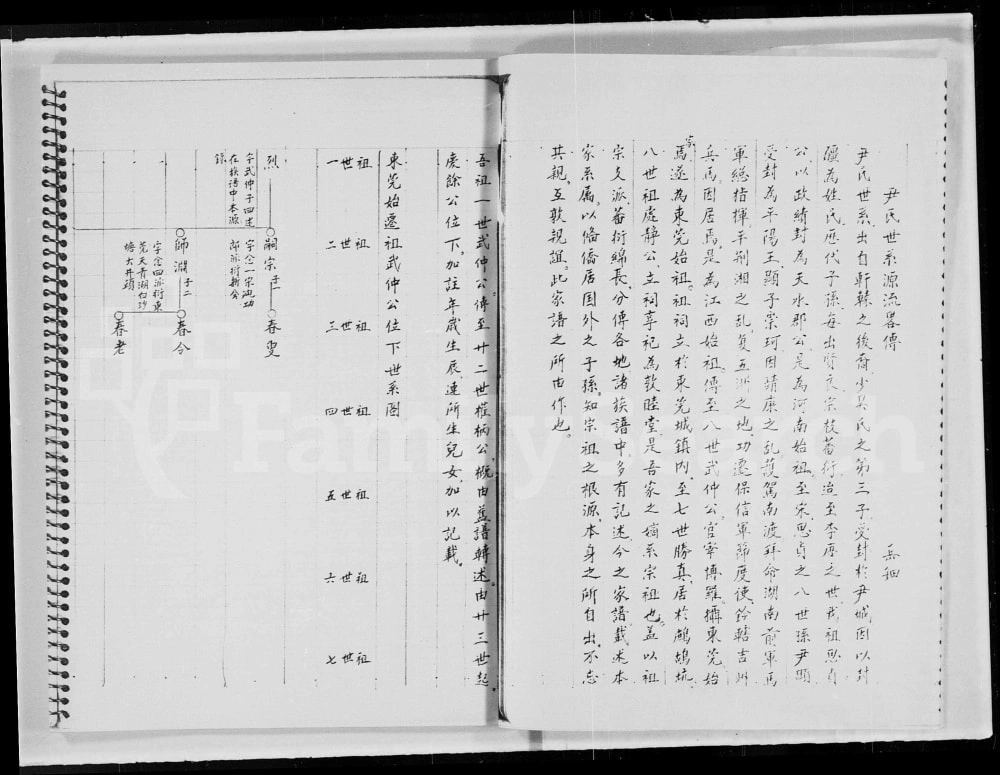 尹氏世系源流畧傳
岳細
尹氏世系出自軒轅之後裔少昊氏之第三子受封於尹城因以封
疆為姓氏歷代子孫每出賢良宗枝蕃衍迨至李唐之世我祖思貞
公以政績封為天水郡公是為河南始祖至宋思貞之八世孫尹顯
受封為平陽王顯子崇珂因靖康之乱護駕南渡拜命湖南前軍馬
軍總指揮平荆湘之乱复五洲之地功遷保信軍節度使鈐轄吉州
兵馬因居焉是為江西始祖傳至八世武仲公官宰博羅攝東莞始
家焉遂為東莞始祖祖祠立於東莞城鎮內至七世勝真居於鷓鴣坑
八世祖處靜公立祠享祀為敦睦堂是吾家之嫡系宗祖也蓋以祖
宗支派蕃衍綿長分傳各地諸族譜中多有記述今之家譜載述本
家系属以俻僑居国外之子孫知宗祖之根源本身之所自出不忘
其親互敦親誼此家譜之所由作也
吾祖一世武仲公傳至廿二世權柄公概由舊譜轉述由廿三世起
處餘公位下加註年歲生辰連所生兒女加以記載
東莞始遷祖武仲公位下世系图
一世祖
二世祖
三世祖
四世祖
五世祖
六世祖
七世祖
烈
字武仲子四述
在族譜中本源
錄
嗣宗子一
字念一宋廸功
郎派衍新會
春叟
師淵子二
字念四派衍東
莞天青湖白沙
春令
春老
FamilySearch